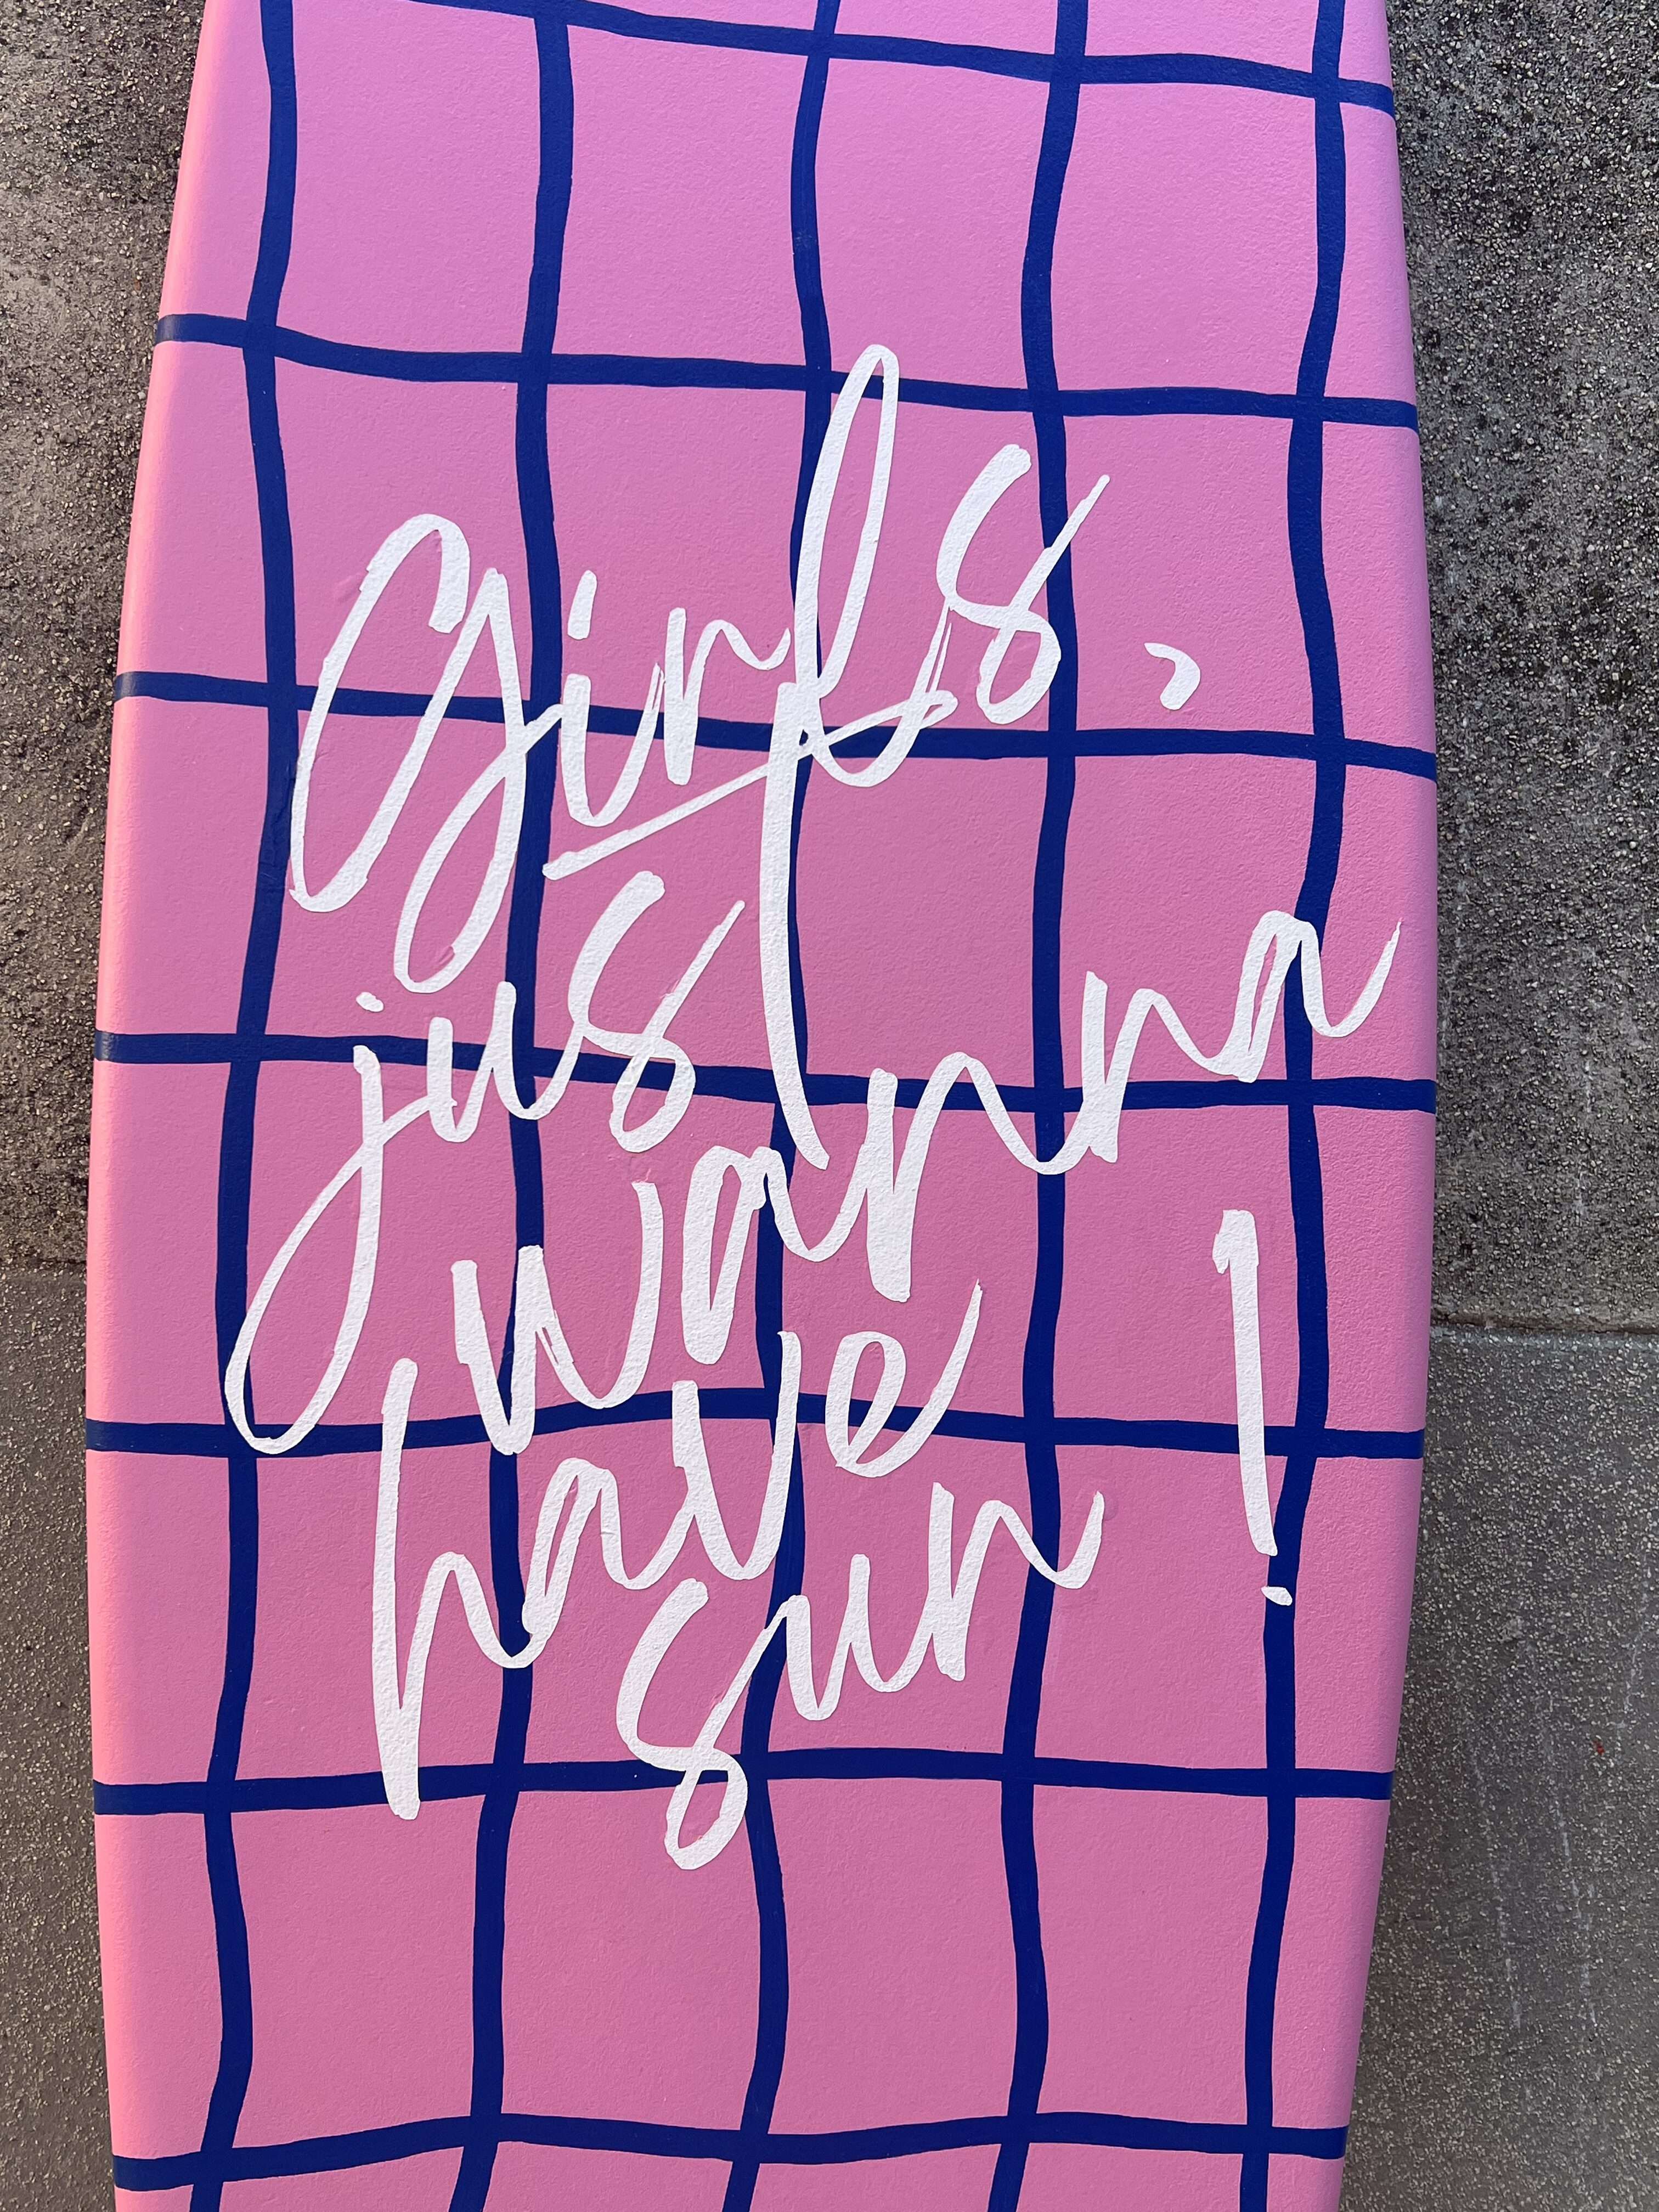 girls,
just
wanna
have
sun!